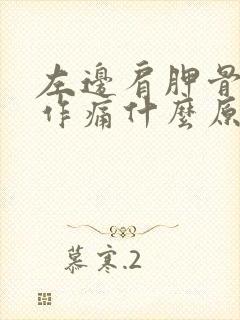 左邊肩胛骨
作痛什麼原
慕寒.2